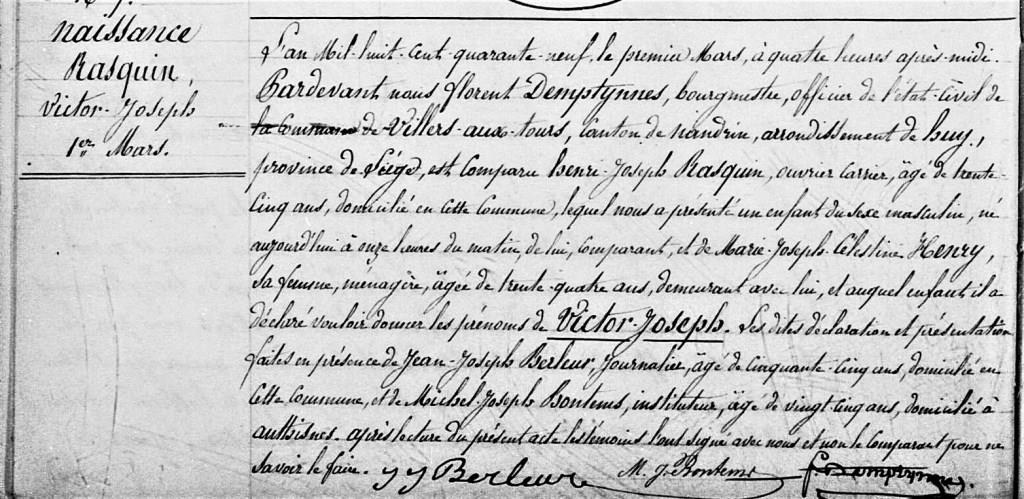 naissance
Rasquin,
Victor-Joseph
1er Mars.
L'an Mil-huit-Cent-quarante-neuf, le premier Mars, à quatre heures après-midi.
Pardevant nous florent Demptynnes, bourgmestre, officier de l'état-Civil de
la Commune de Villers-aux-tours, Canton de nandrin, arrondissement de huy,
province de Liège, est Comparu henri-Joseph Rasquin, ouvrier Carrier, âgé de trente-
Cinq ans, domicilié en Cette Commune, lequel nous a présenté un enfant du sexe masculin, né
aujourd'hui à onze heures du matin, de lui, Comparant, et de Marie-Joseph-Célestine Henry,
Sa femme, ménagère, âgée de trente-quatre ans, demeurant avec lui, et auquel enfant il a
déclaré vouloir donner les prénoms de Victor-Joseph. Les dites déclaration et présentation
faites en présence de Jean-Joseph Berleur, Journalier, âgé de Cinquante-Cinq ans, domicilié en
Cette Commune, et de Michel-Joseph Bontems, instituteur, âgé de vingt-Cinq ans, domicilié à
anthisnes. après lecture du présent acte les témoins l'ont signé avec nous et non le Comparant pour ne
Savoir le faire. J J Berleur M. J. Bontems f. Demptynnes.